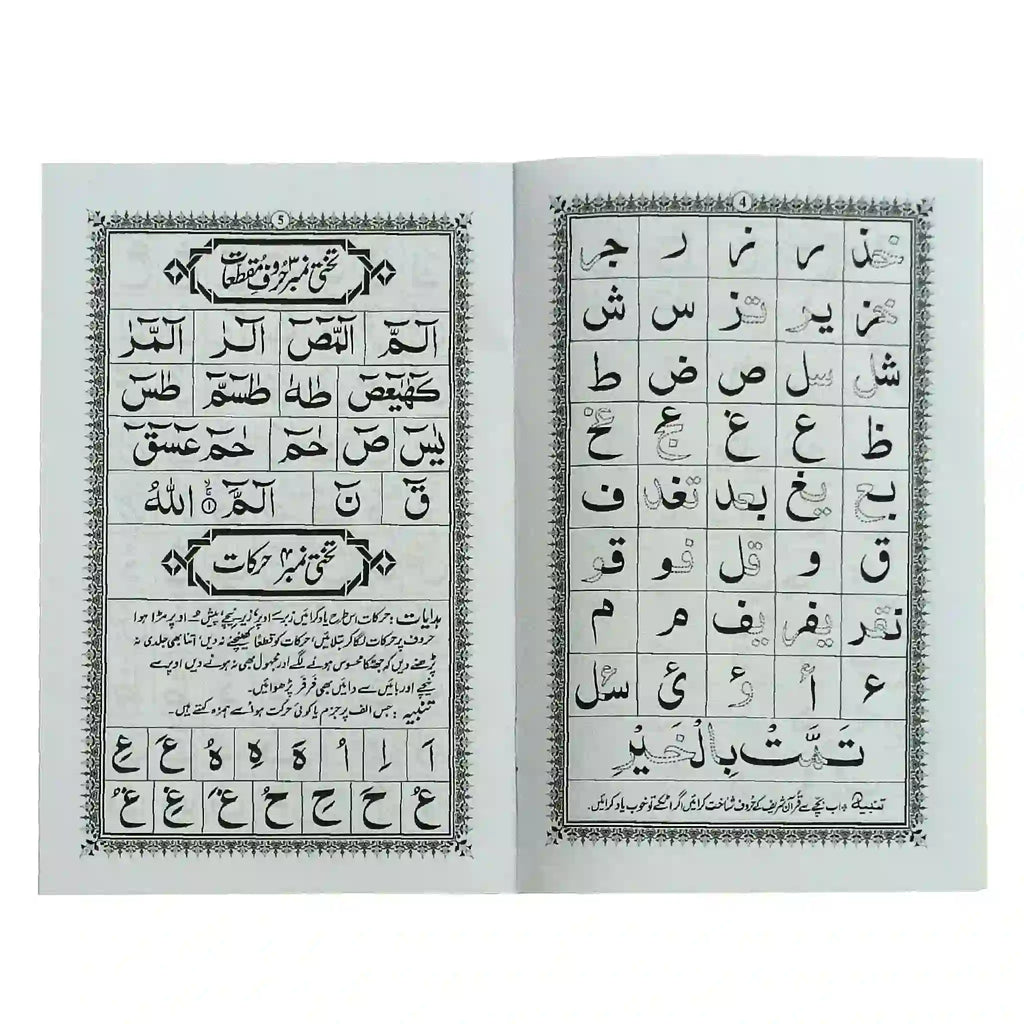 4
خذ ر ز ر جر
خز یر تز س ش
شل سل ص ض ط
ظ ع غ عج غخ
بع یغ بعد تغد ف
ق و قل فو قو
نقر یفر یف م م
ء أ ؤ ئ سئل
تَمَّتْ بِالْخَیْرِ
تنبیہ: اب بچے سے قرآن شریف کے حروف شناخت کرائیں اگر اٹکے تو خوب یاد کرائیں۔
5
تختی نمبر ۳ حروفِ مُقَطَّعات
الٓمّٓ الٓمّٓصٓ الٓرٰ الٓمّٓرٰ
کٓھٰیٰعٓصٓ طٰہٰ طٰسٓمّٓ طٰسٓ
یٰسٓ صٓ حٰمٓ حٰمٓ عٓسٓقٓ
قٓ نٓ الٓمّٓ ۙ۝۱ اللّٰہُ
تختی نمبر ۴ حرکات
ہدایات: حرکات اس طرح یاد کرائیں زبر ـَ اوپر، زیر ـِ نیچے، پیش ـُ اوپر مڑا ہوا
حروف پر حرکات لگا کر بتلائیں، حرکات کو قطعاً کھینچنے نہ دیں، اتنا بھی جلدی نہ
پڑھنے دیں کہ جھٹکا محسوس ہونے لگے اور مجہول بھی نہ ہونے دیں اوپر سے
نیچے اور بائیں سے دائیں بھی فَر فَر پڑھوائیں۔
تنبیہ: جس الف پر جزم یا کوئی حرکت ہو اسے ہمزہ کہتے ہیں۔
اَ اِ اُ ہَ ہِ ہُ عَ عِ
عُ حَ حِ حُ غَ غِ غُ